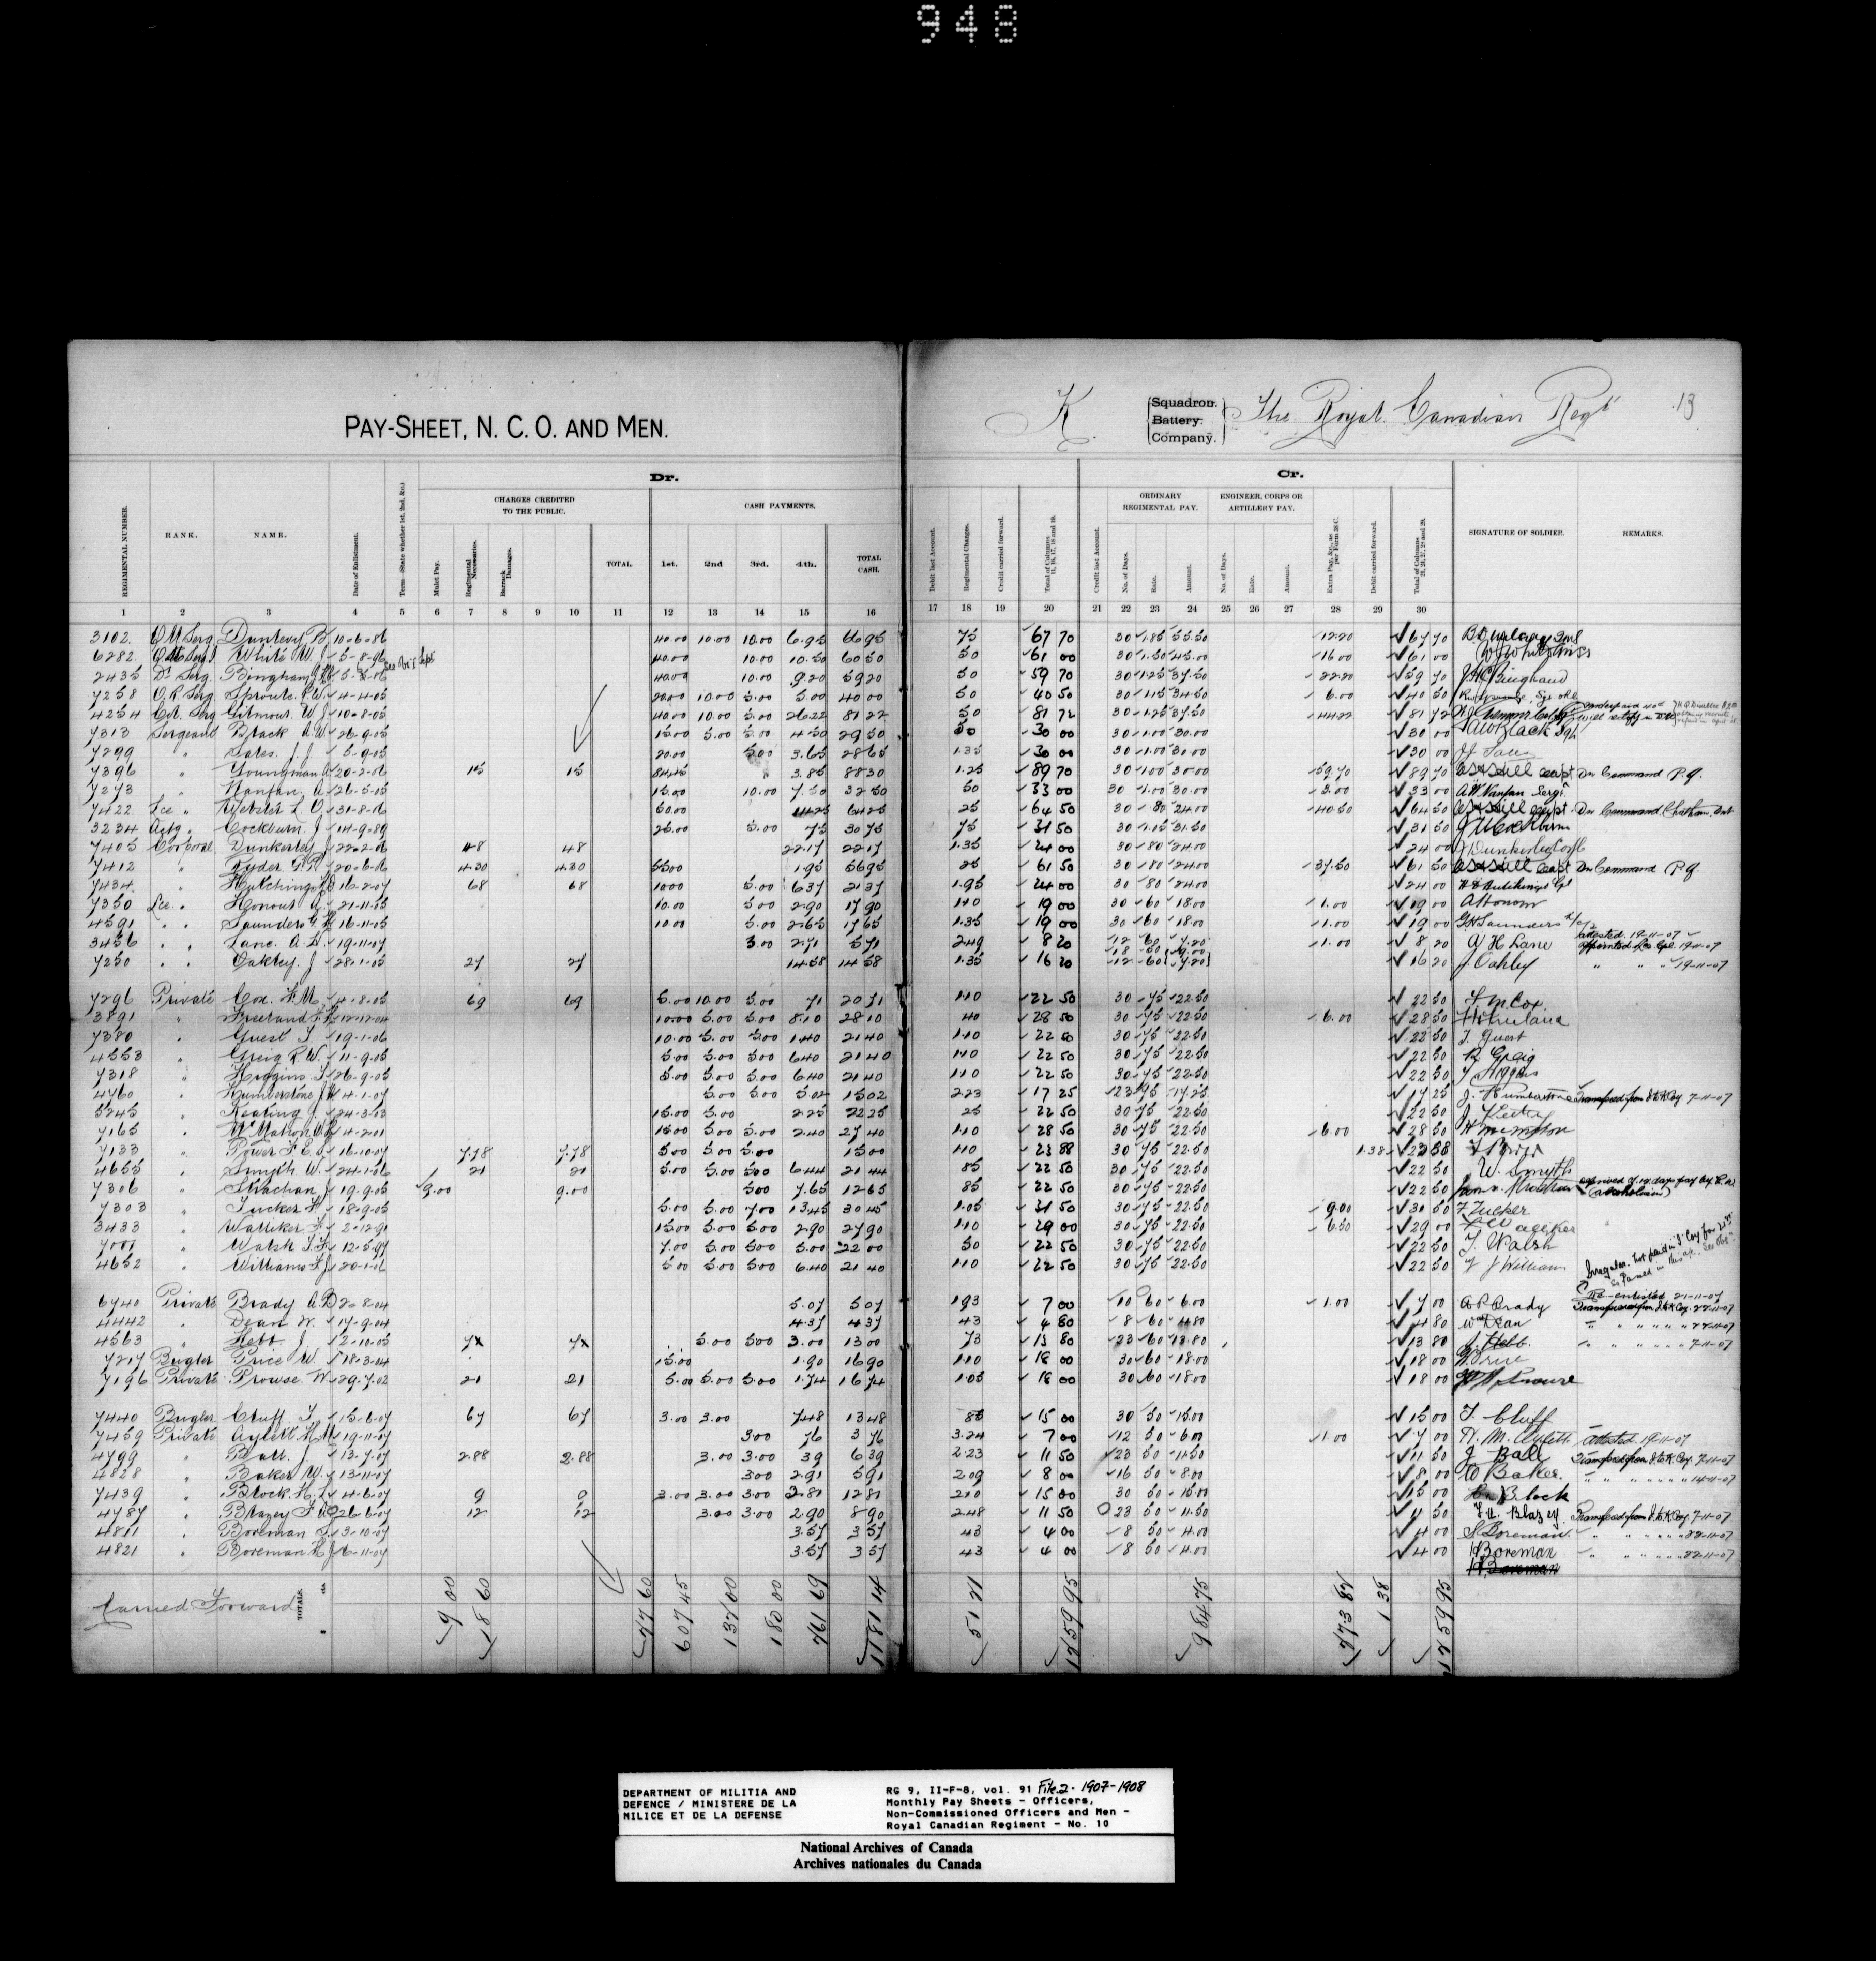 948
PAY-SHEET, N. C. O. AND MEN.
K Squadron. Battery. Company. The Royal Canadian Regt 13
Dr.
Cr.
CHARGES CREDITED TO THE PUBLIC.
CASH PAYMENTS.
ORDINARY REGIMENTAL PAY.
ENGINEER, CORPS OR ARTILLERY PAY.
REGIMENTAL NUMBER. RANK. NAME. Date of Enlistment. Term (State whether 1st, 2nd, &c.) Mulct Pay. Regimental Necessaries. Barrack Damages. TOTAL. 1st. 2nd 3rd. 4th. TOTAL CASH. Debit last Account. Regimental Charges. Credit carried forward. Total of Columns 11, 16, 17, 18 and 19. Credit last Account. No. of Days. Rate. Amount. No. of Days. Rate. Amount. Extra Pay, &c., as per Form 38 C. Debit carried forward. Total of Columns SIGNATURE OF SOLDIER. REMARKS.
1 2 3 4 5 6 7 8 9 10 11 12 13 14 15 16 17 18 19 20 21 22 23 24 25 26 27 28 29 30
3102. Q M Serg 10-6-86 40.00 10.00 10.00 6.95 66 95 75 67 70 30 1.85 55.50 12.20 67 70
6282. White W. J 5-8-96 40.00 10.00 10.50 60 50 50 61 00 30 1.50 45.00 16 00 61 00
2435 Dr Serg. Bingham 40.00 10.00 9.20 59 20 50 59 70 30 1.25 37.50 22.20 59 70
7258 O. R. Serg Sproule. R.W. 4-4-05 20.00 10.00 5.00 5.00 40 00 50 40 50 30 1.15 34.50 6.00 40 50
4254 Col. Serg Gilmour. W. J 10-8-05 40.00 10.00 5.00 26.22 81 22 50 81 72 30 1.25 37.50 44.22 81 72
7313 Sergeant Black A.W. 26-9-05 15.00 5.00 5.00 4.50 29 50 50 30 00 30 1.00 30.00 30 00 A W Black Sgt
7299 " J. J 5-9-05 20.00 5.00 3.65 28 65 1.35 30 00 30 1.00 30.00 30 00
7396 " Youngman 20-2-06 15 15 84.45 3.85 88 30 1.25 89 70 30 1.00 30.00 59.70 89 70 On Command P.Q.
7273 " Nanfan. A 26-5-05 15.00 10.00 7.50 32 50 50 33 00 30 1.00 30.00 3.00 33 00 A W Nanfan Sergt
7422 Lce " Webster L. O. 31-8-06 50.00 14.25 64 25 25 64 50 30 80 24.00 40.50 64 50 On Command Chatham, Ont
3234 Actg " Cockburn. J 14-9-89 25.00 5.00 75 30 75 75 31 50 30 1.05 31.50 31 50 J Cockburn
7405 Corporal Dunkerley J 22-2-06 48 48 22.17 22 17 1.35 24 00 30 80 24.00 24 00 J Dunkerley Corpl
7412 " Ryder G.R. 20-6-06 4.30 4.30 55.00 1.95 56 95 25 61 50 30 80 24.00 37.50 61 50 On Command P.Q.
7434. " Hutchings 16-2-07 68 68 10.00 5.00 6.37 21 37 1.95 24 00 30 80 24.00 24 00
7350 Lce " Honour A. 21-11-05 10.00 5.00 2.90 17 90 1.10 19 00 30 60 18.00 1.00 19 00 A Honour
4591 " " Saunders G. H 16-11-05 10.00 5.00 2.65 17 65 1.35 19 00 30 60 18.00 1.00 19 00 G H Saunders
3456 " " Lane. A. H. 19-11-07 3.00 2.71 5 71 2.49 8 20 12 60 7.20 1.00 8 20 A H Lane attested 19-11-07 appointed Lce Cpl. 19-11-07
7250 " " Oakley. J 28-1-05 27 27 14.58 14 58 1.35 16 20 18 50 9.00 12 60 7.20 16 20 J. Oakley " " " 19-11-07
7296 Private Cox. F. M. 4-8-05 69 69 5.00 10.00 5.00 71 20 71 1.10 22 50 30 75 22.50 22 50 F M Cox
3891 " Freeland F. H 12-12-04 10.00 5.00 5.00 8.10 28 10 40 28 50 30 75 22.50 6.00 28 50
7380 " Guest T. 19-1-06 10.00 5.00 5.00 1.40 21 40 1.10 22 50 30 75 22.50 22 50 T. Guest
4553 " Greig R. W. 11-9-05 5.00 5.00 5.00 6.40 21 40 1.10 22 50 30 75 22.50 22 50 R Greig
7318 " Higgins. T 26-9-05 5.00 5.00 5.00 6.40 21 40 1.10 22 50 30 75 22.50 22 50 T Higgins
4760 " Humberstone J. W 4-1-07 5.00 5.00 5.02 15 02 2.23 17 25 23 75 17.25 17 25 J. Humberstone Transferred from I & K Coy 7-11-07
5245 " Keating J. 24-3-03 15.00 5.00 2.25 22 25 25 22 50 30 75 22.50 22 50
7165 " McMahon W. H 4-2-01 15.00 5.00 5.00 2.40 27 40 1.10 28 50 30 75 22.50 6.00 28 50
7133 " Power F. E. 16-10-07 7.78 7.78 5.00 5.00 5.00 15 00 1.10 23 88 30 75 22.50 1.38 23 88 F Power
4655 " Smyth W. 24-1-06 21 21 5.00 5.00 5.00 6.44 21 44 85 22 50 30 75 22.50 22 50 W. Smyth
7306 " Strachan J 19-9-05 9.00 9.00 5.00 7.65 12 65 85 22 50 30 75 22.50 22 50 deprived of 12 days pay
7303 " Tucker F. 18-9-05 5.00 5.00 7.00 13.45 30 45 1.05 31 50 30 75 22.50 9.00 31 50 F Tucker
3433 " Walliker F. 2-12-91 15.00 5.00 5.00 2.90 27 90 1.10 29 00 30 75 22.50 6.50 29 00
7001 " Walsh T. F. 12-5-97 7.00 5.00 5.00 5.00 22 00 50 22 50 30 75 22.50 22 50 T. Walsh
4652 " Williams F. J. 20-1-06 5.00 5.00 5.00 6.40 21 40 1.10 22 50 30 75 22.50 22 50 F J Williams
6740 Private Brady A.P. 2-8-04 5.07 5 07 1.93 7 00 10 60 6.00 1.00 7 00 A P Brady Re-enlisted 21-11-07
4442 " Dean W. 17-9-04 4.37 4 37 43 4 80 8 60 4.80 4 80 Wm Dean " " " " " 22-11-07
4563 " Hebb. J 2-10-05 5.00 5.00 3.00 13 00 73 13 80 23 60 13.80 13 80 J. Hebb. " " " " " 7-11-07
7217 Bugler Price W. 18-3-04 15.00 1.90 16 90 1.10 18 00 30 60 18.00 18 00
7196 Private Prowse. W 29-7-02 21 21 5.00 5.00 5.00 1.74 16 74 1.05 18 00 30 60 18.00 18 00
7440 Bugler Cluff T. 15-6-07 67 67 3.00 3.00 7.48 13 48 85 15 00 30 50 15.00 15 00 T. Cluff
7459 Private Aylett H. M 19-11-07 3.00 76 3 76 3.24 7 00 12 50 6.00 1.00 7 00 Attested 19-11-07
4799 " Ball. J. 13-7-07 2.88 2.88 3.00 3.00 39 6 39 2.23 11 50 23 50 11.50 11 50 J Ball Transferred from I & K Coy. 7-11-07
4828 " Baker W. 13-11-07 3.00 2.91 5 91 2.09 8 00 16 50 8.00 8 00 W Baker. " " " " " 14-11-07
7439 " Block. H. L 14-6-07 9 9 3.00 3.00 3.00 3.81 12 81 2.10 15 00 30 50 15.00 15 00 H. Block
4787 " Blazey F. A. 26-6-07 12 12 3.00 3.00 2.90 8 90 2.48 11 50 23 50 11.50 11 50 F. A. Blazey Transferred from I & K Coy. 7-11-07
4811 " Boreman S. 3-10-07 3.57 3 57 43 4 00 8 50 4.00 4 00 S Boreman " " " " " 22-11-07
4821 " Boreman H. J 6-11-07 3.57 3 57 43 4 00 8 50 4.00 4 00 H Boreman " " " " " 22-11-07
H Boreman
Carried Forward TOTALS. 9 00 18 60 27 60 607 45 132 00 180 00 261 69 1181 14 51 21 1259 95 984 75 273 82 1 38 1259 95
DEPARTMENT OF MILITIA AND
DEFENCE / MINISTERE DE LA
MILICE ET DE LA DEFENSE
RG 9, II-F-8, vol. 91 File 2 · 1907-1908
Monthly Pay Sheets - Officers,
Non-Commissioned Officers and Men -
Royal Canadian Regiment - No. 10
National Archives of Canada
Archives nationales du Canada